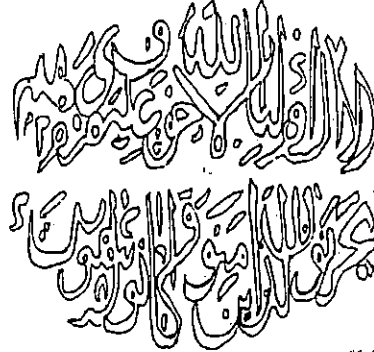 ألا إن أولياء الله لا خوف عليهم ولا هم يحزنون
الذين آمنوا وكانوا يتقون